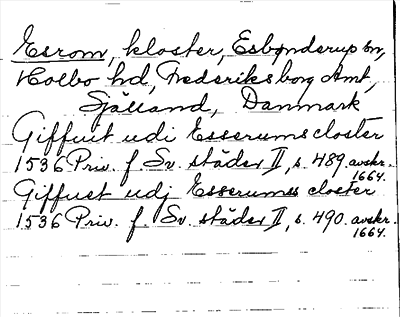 Esrom, kloster, Esbønderup sn,
Holbo hd, Frederiksborg Amt,
Själland, Danmark
Giffuit udi Esserums closter
1536 Priv. f. Sv. städer II, s. 489. avskr. 1664.
Giffuet udj Esserums closter
1536 Priv. f. Sv. städer II, s. 490. avskr. 1664.